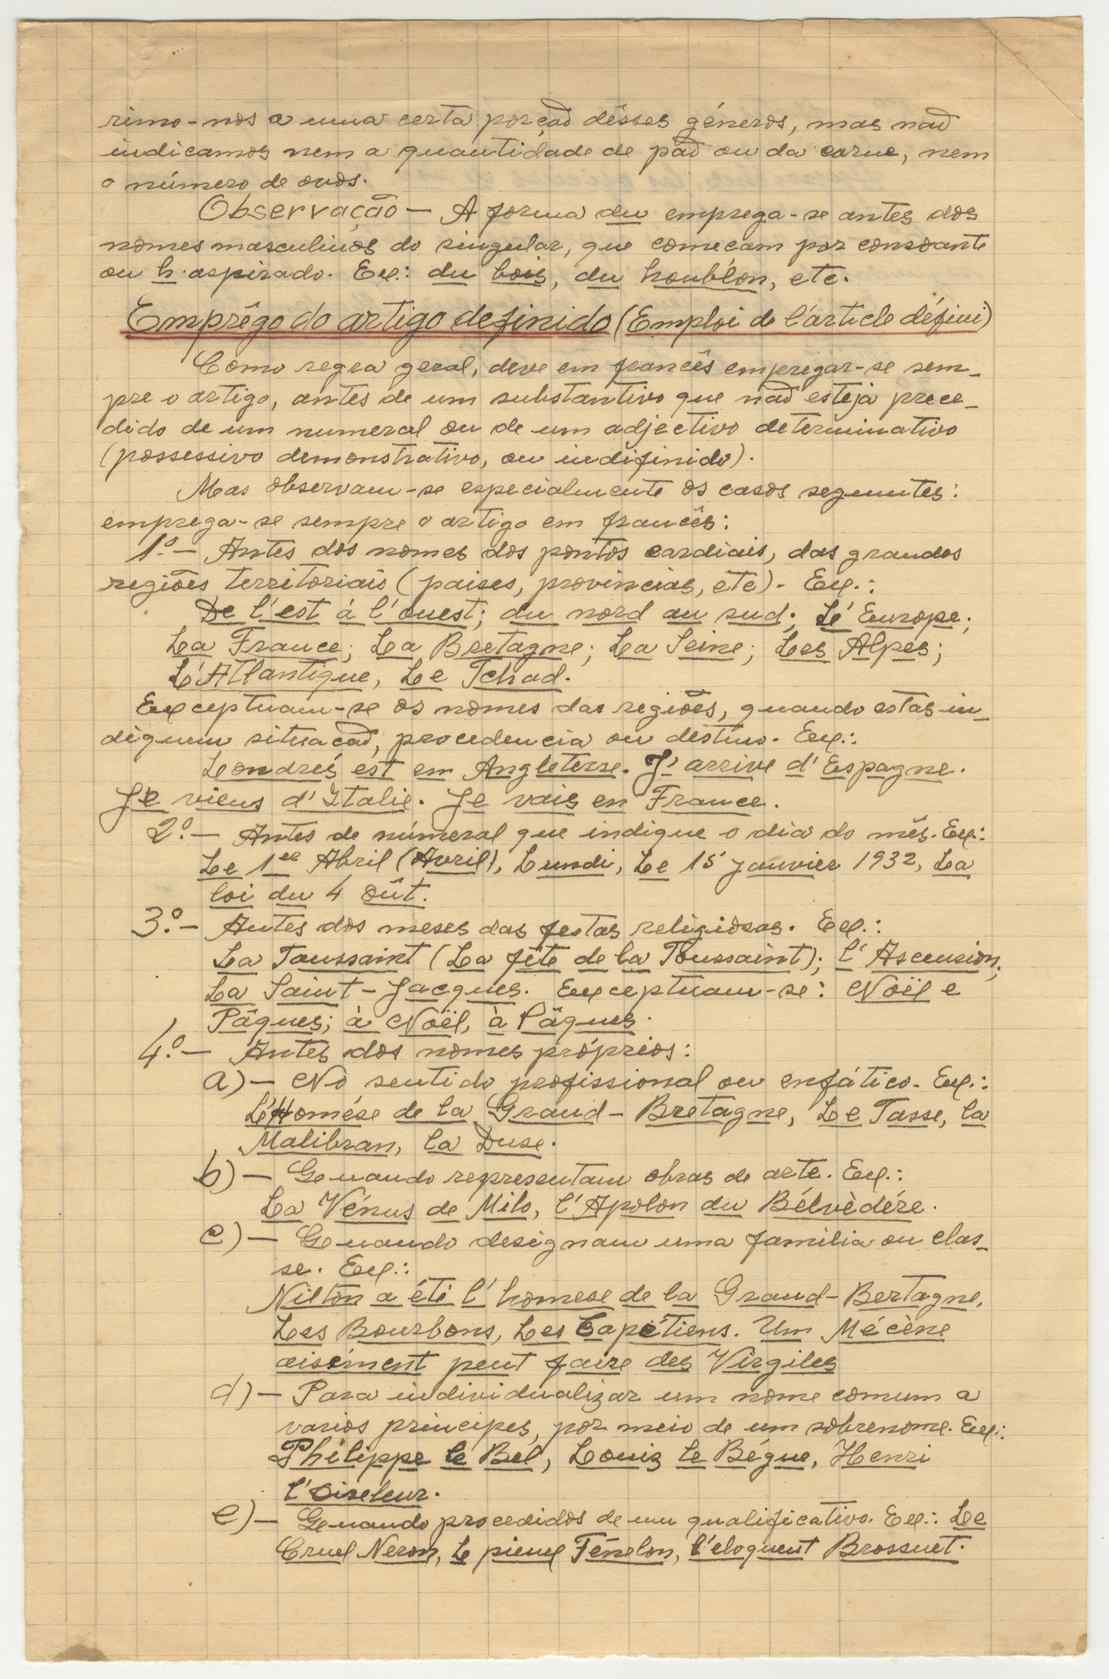 rimo-nos a uma certa porção dêsses géneros, mas não
indicamos nem a quantidade de pão ou da carne, nem
o número de ovos.
Observação — A forma du emprega-se antes dos
nomes masculinos do singular, que começam por consoante
ou h. aspirado. Ex.: du bois, du houblon, etc.
Emprêgo do artigo definido (Emploi de l'article défini)
Como regra geral, deve em francês empregar-se sem-
pre o artigo, antes de um substantivo que não esteja prece-
dido de um numeral ou de um adjectivo determinativo
(possessivo demonstrativo, ou indifinido).
Mas observam-se especialmente os casos seguintes:
emprega-se sempre o artigo em francês:
1.º — Antes dos nomes dos pontos cardiais, das grandes
regiões territoriais (paises, provincias, etc) - Ex.:
De l'est à l'ouest; du nord au sud. L'Europe;
La France; La Bretagne; La Seine; Les Alpes;
L'Atlantique, Le Tchad.
Exceptuam-se os nomes das regiões, quando estas in-
diquem situação, procedencia ou destino. Ex.:
Londres est em Angleterre. J'arrive d'Espagne.
Je viens d'Italie. Je vais en France.
2.º — Antes de númeral que indique o dia do mês. Ex:
Le 1er Abril (Avril), Lundi, Le 15 janvier 1932, La
loi du 4 Oût.
3.º — Antes dos meses das festas religiosas. Ex.:
La Toussaint (La fête de la Toussaint); l'Ascension;
La Saint-Jacques. Exceptuam-se: Noël e
Pâques; à Noël, à Pâques.
4.º — Antes dos nomes próprios:
a) — No sentido profissional ou enfático. Ex.:
L'Homére de la Grand-Bretagne, Le Tasse, la
Malibran, la Duse.
b) — Quando representam obras de arte. Ex.:
La Vénus de Milo, l'Apolon du Bélvèdére.
c) — Quando designam uma familia ou clas-
se. Ex.:
Nilton a été l'homese de la Grand-Bertagne,
Les Bourbons, Les Capétiens. Um Mécène
aisèment peut faire des Virgiles
d) — Para individualizar um nome comum a
varios principes, por meio de um sobrenome. Ex.:
Philippe le Bel, Louis le Bégue, Henri
l'Oiseleur.
e) — Quando procedidos de um qualificativo. Ex.: Le
Cruel Neron, Le pieux Fénelon, l'eloquent Brossuet.